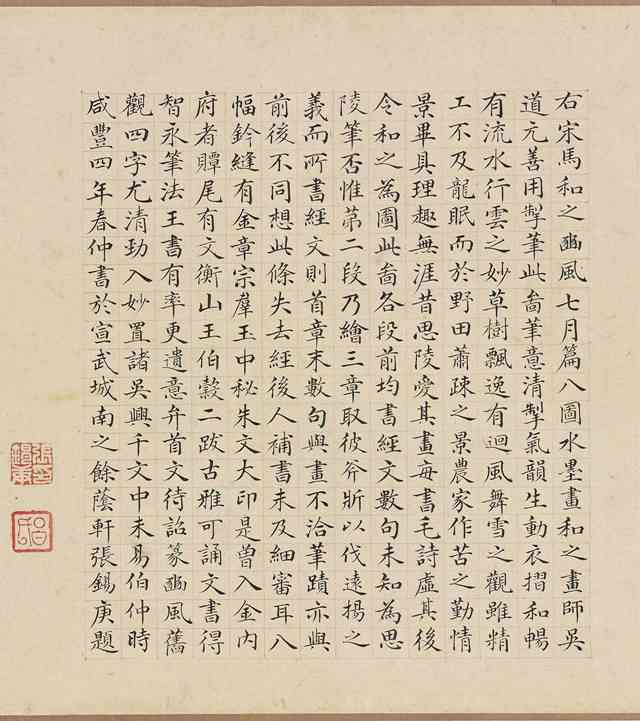 右宋馬和之豳風七月篇八圖水墨畫和之畫師吳
道元善用掣筆此啚筆意清掣氣韻生動衣摺和暢
有流水行雲之妙草樹飄逸有迴風舞雪之觀雖精
工不及龍眠而於野田蕭疎之景農家作苦之勤情
景畢具理趣無涯昔思陵愛其畫每書毛詩虛其後
令和之為圖此啚各段前均書經文數句未知為思
陵筆否惟第二段乃繪三章取彼斧斨以伐遠揚之
義而所書經文則首章末數句與畫不洽筆蹟亦與
前後不同想此條失去經後人補書未及細審耳八
幅鈐縫有金章宗羣玉中秘朱文大印是曾入金內
府者贉尾有文衡山王伯穀二跋古雅可誦文書得
智永筆法王書有率更遺意弁首文待詔篆豳風舊
觀四字尤清勁入妙置諸吳興千文中未易伯仲時
咸豐四年春仲書於宣武城南之餘蔭軒張錫庚題
張印錫庚